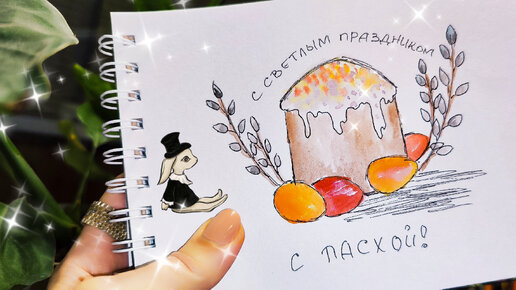 С СВЕТЛЫМ ПРАЗДНИКОМ
С ПАСХОЙ!